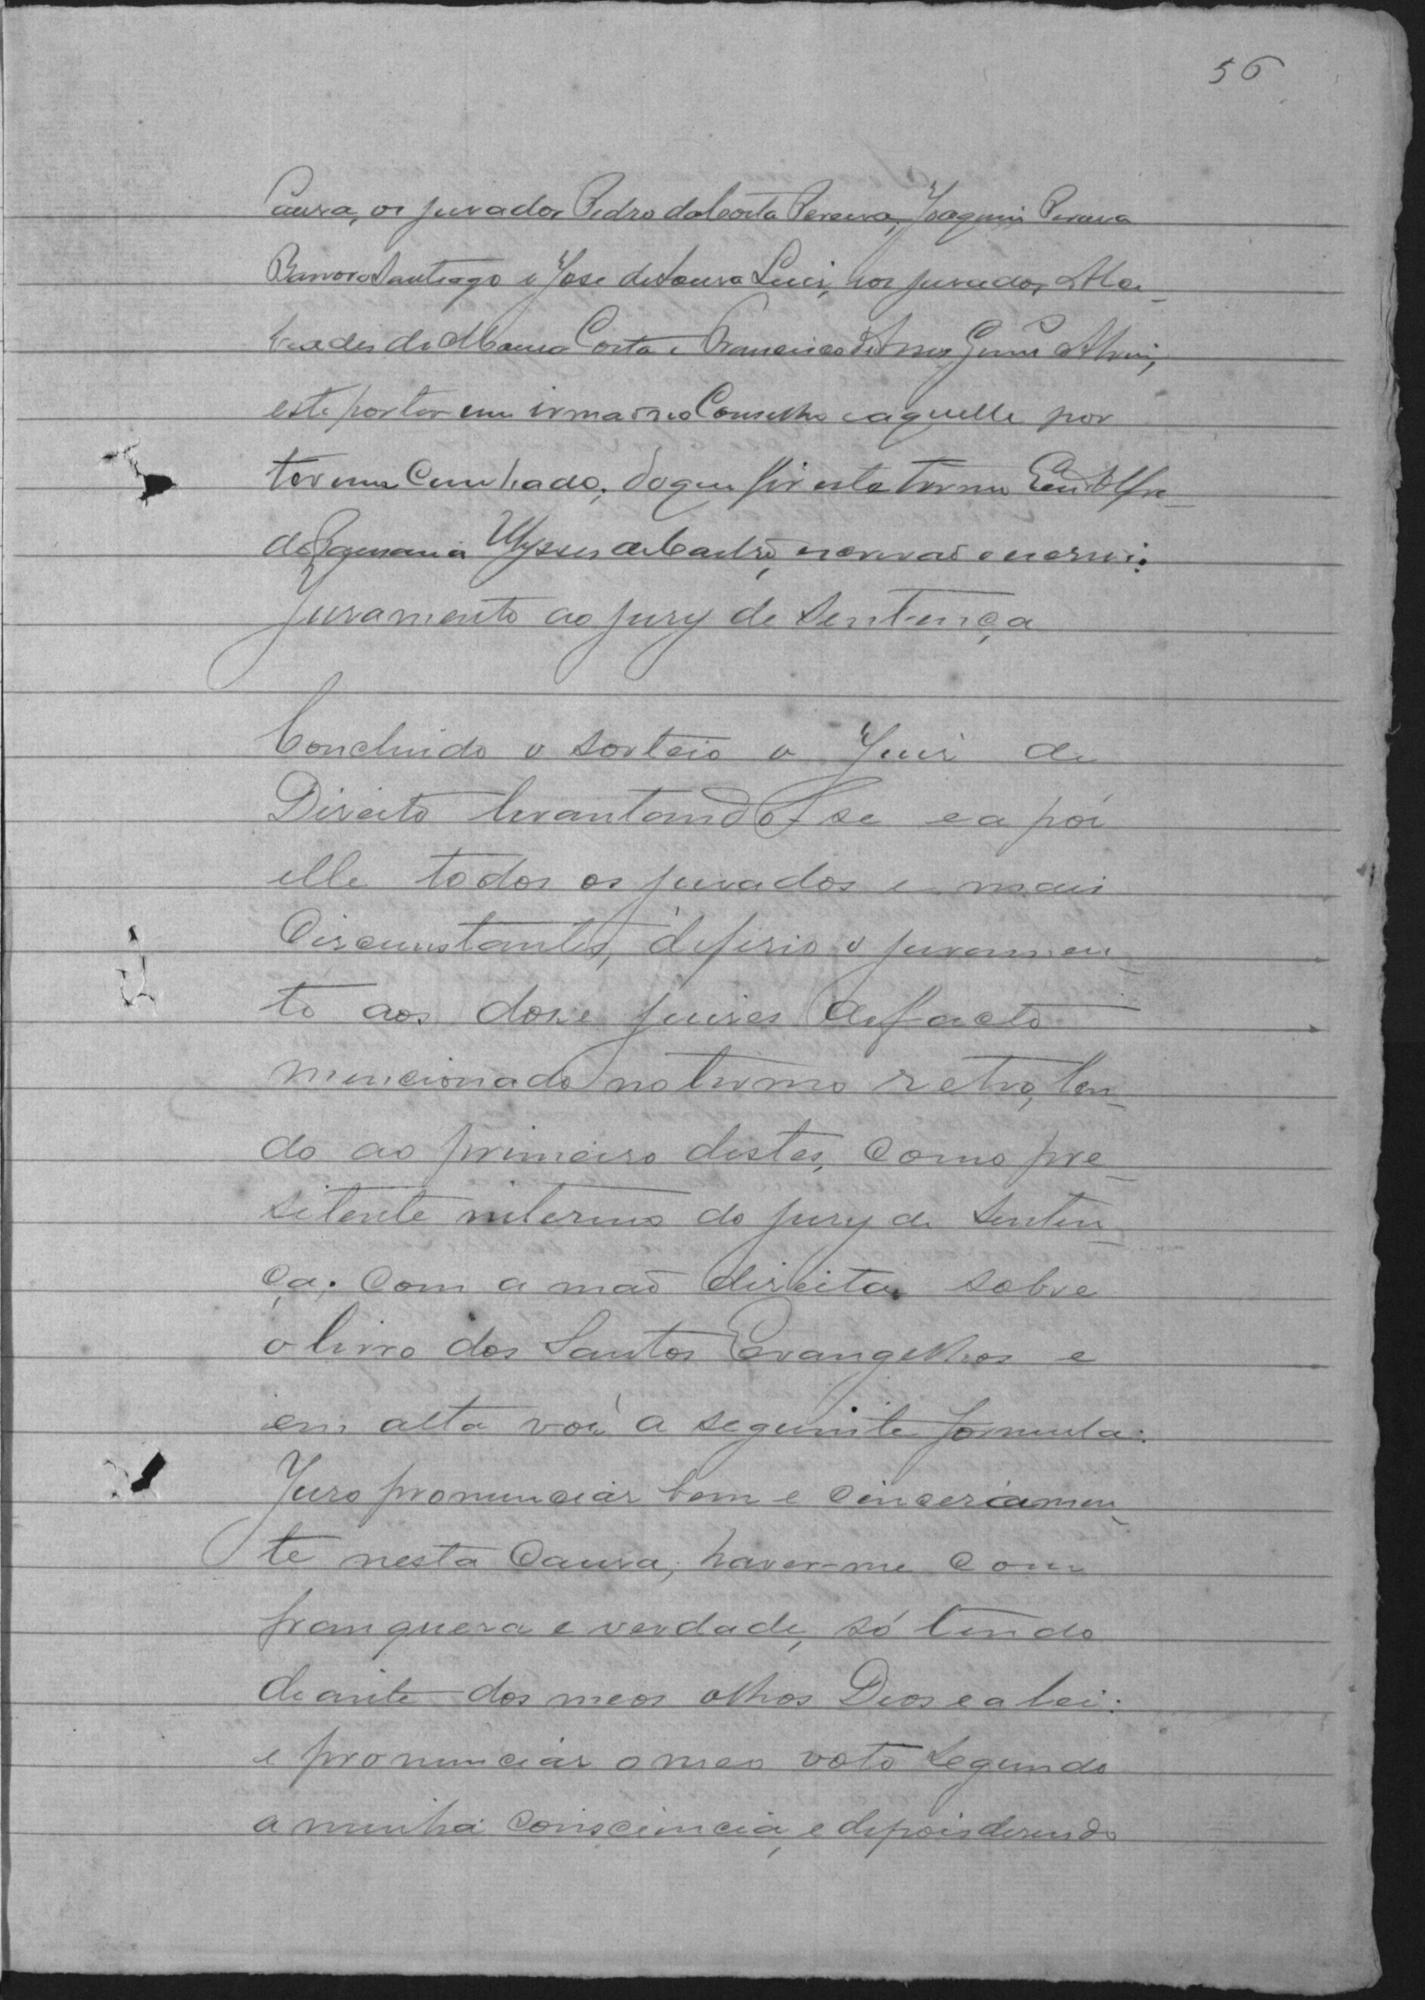 56
Causa, os jurados Pedro da Costa Pereira, Joaquim Pereira
Barroso Santiago e José de Sousa Luis, e os jurados Alci-
biades de Moura Costa e Francisco de Gomes Alves,
este por ter um irmaõ no Conselho e aquelle por
ter um Cunhado; do que fiz este termo Eu Alfre-
do Ulysses de Castro, escrivaõ o escrevi.
Juramento ao jury de sentença
Concluido o sorteio o Juiz de
Direito levantando-se e apoz
elle todos os jurados e mais
Circunstantes, deferio o juramen-
to aos dose juizes de facto
mencionado no termo retro, len-
do ao primeiro destes, como pre-
sitente interino do jury de senten-
ça; com a maõ direita sobre
o livro dos Santos Evangelhos e
em alta voz a seguinte formula:
Juro pronunciar bem e cinceriamen-
te nesta Causa, haver-me com
franquesa e verdade, só tendo
deante dos meos olhos Deos e a lei:
e pronunciar o meo voto segundo
a minha consciencia, e depois disendo